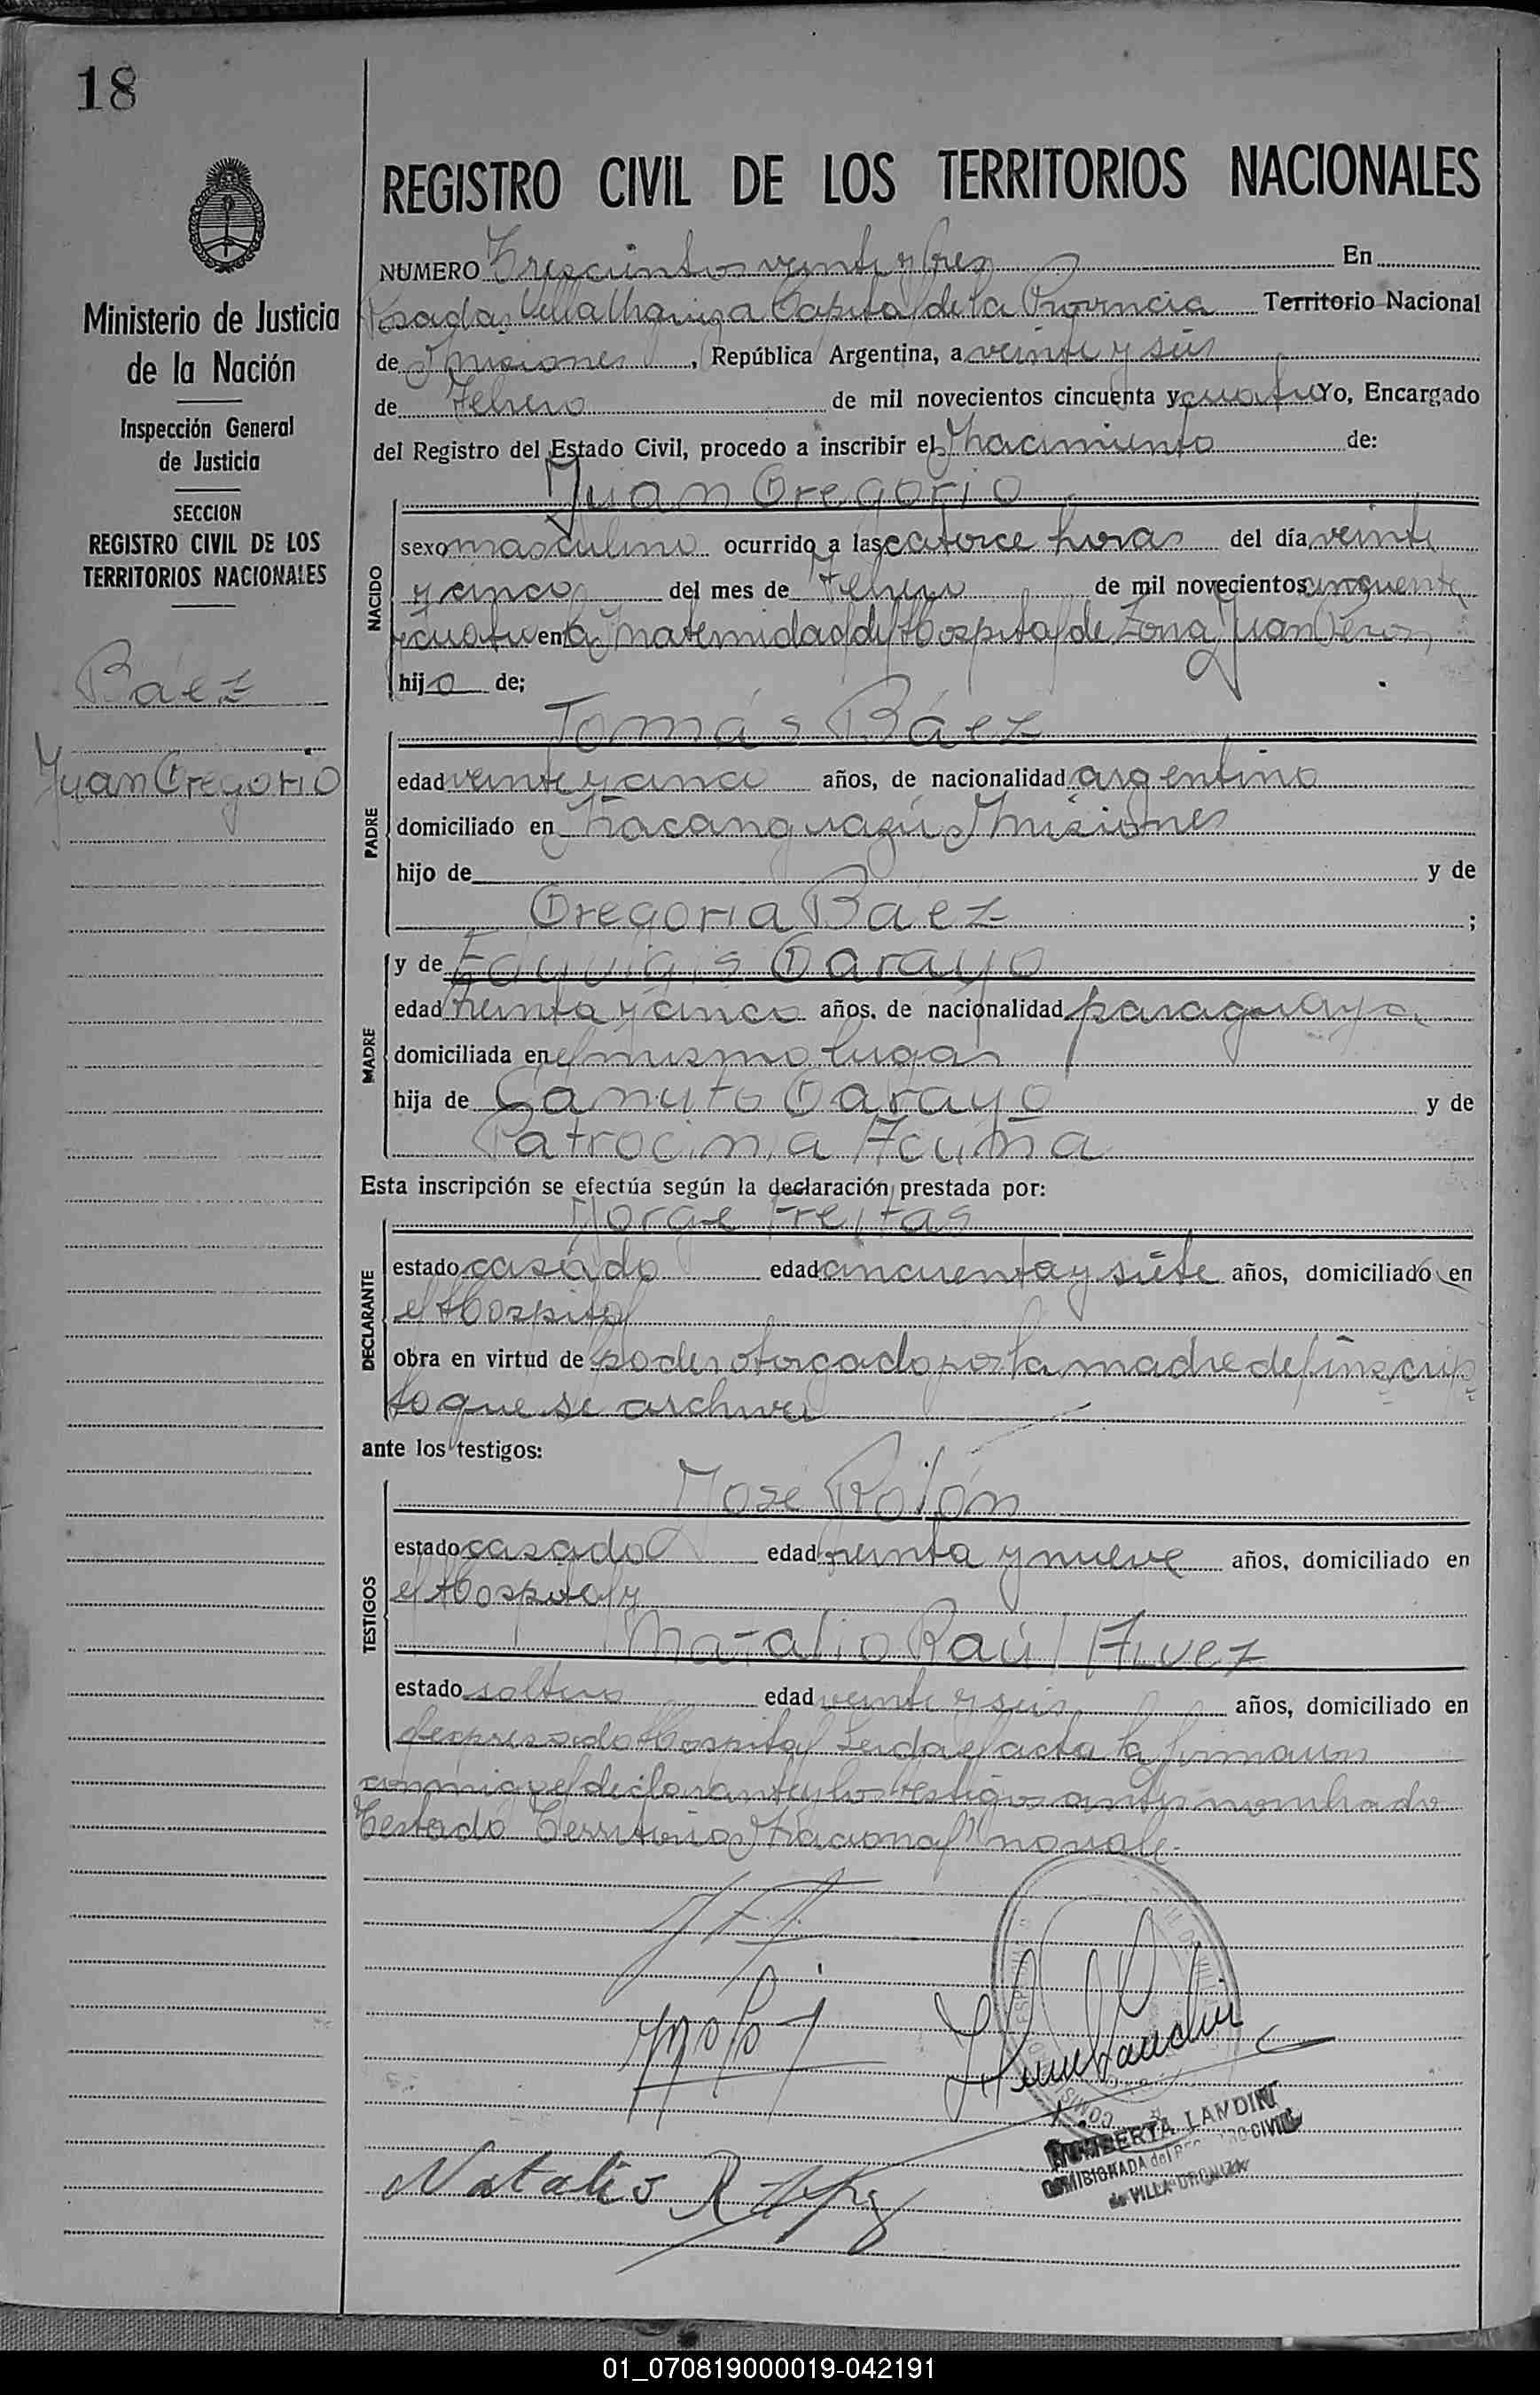 18
REGISTRO CIVIL DE LOS TERRITORIOS NACIONALES
NUMERO Trescientos veinte y tres En
Posadas Villa Urquiza Capital de la Provincia Territorio Nacional
de Misiones, República Argentina, a veinte y seis
de Febrero de mil novecientos cincuenta y cuatro Yo, Encargado
del Registro del Estado Civil, procedo a inscribir el Nacimiento de:
Ministerio de Justicia
de la Nación
Inspección General
de Justicia
SECCION
REGISTRO CIVIL DE LOS
TERRITORIOS NACIONALES
Báez
Juan Gregorio
NACIDO
Juan Gregorio
sexo masculino ocurrido a las catorce horas del día veinte
y cinco del mes de Febrero de mil novecientos cincuenta
y cuatro en la Maternidad del Hospital de Zona Juan Perón,
hijo de;
PADRE
Tomás Báez
edad veinte y cinco años, de nacionalidad argentino
domiciliado en Ñacanguazú Misiones
hijo de y de
Gregoria Báez ;
MADRE
y de Eduvigis Garayo
edad treinta y cinco años, de nacionalidad paraguaya
domiciliada en el mismo lugar
hija de Canuto Garayo y de
Patrocinia Acuña
Esta inscripción se efectúa según la declaración prestada por:
DECLARANTE
Jorge Freitas
estado casado edad cincuenta y siete años, domiciliado en
el Hospital
obra en virtud de poder otorgado por la madre del inscrip
to que se archiva
ante los testigos:
TESTIGOS
José Rolón
estado casado edad treinta y nueve años, domiciliado en
el Hospital y
Natalio Raúl Alvez
estado soltero edad veinte y seis años, domiciliado en
el expresado Hospital Leida el acta la firmaron
conmigo el declarante y los testigos antes nombrado
Testado Territorio Nacional no vale.
Natalio R Alvez
HUMBERTA LANDINI
COMISIONADA del REGISTRO CIVIL
de VILLA URQUIZA
01_070819000019-042191